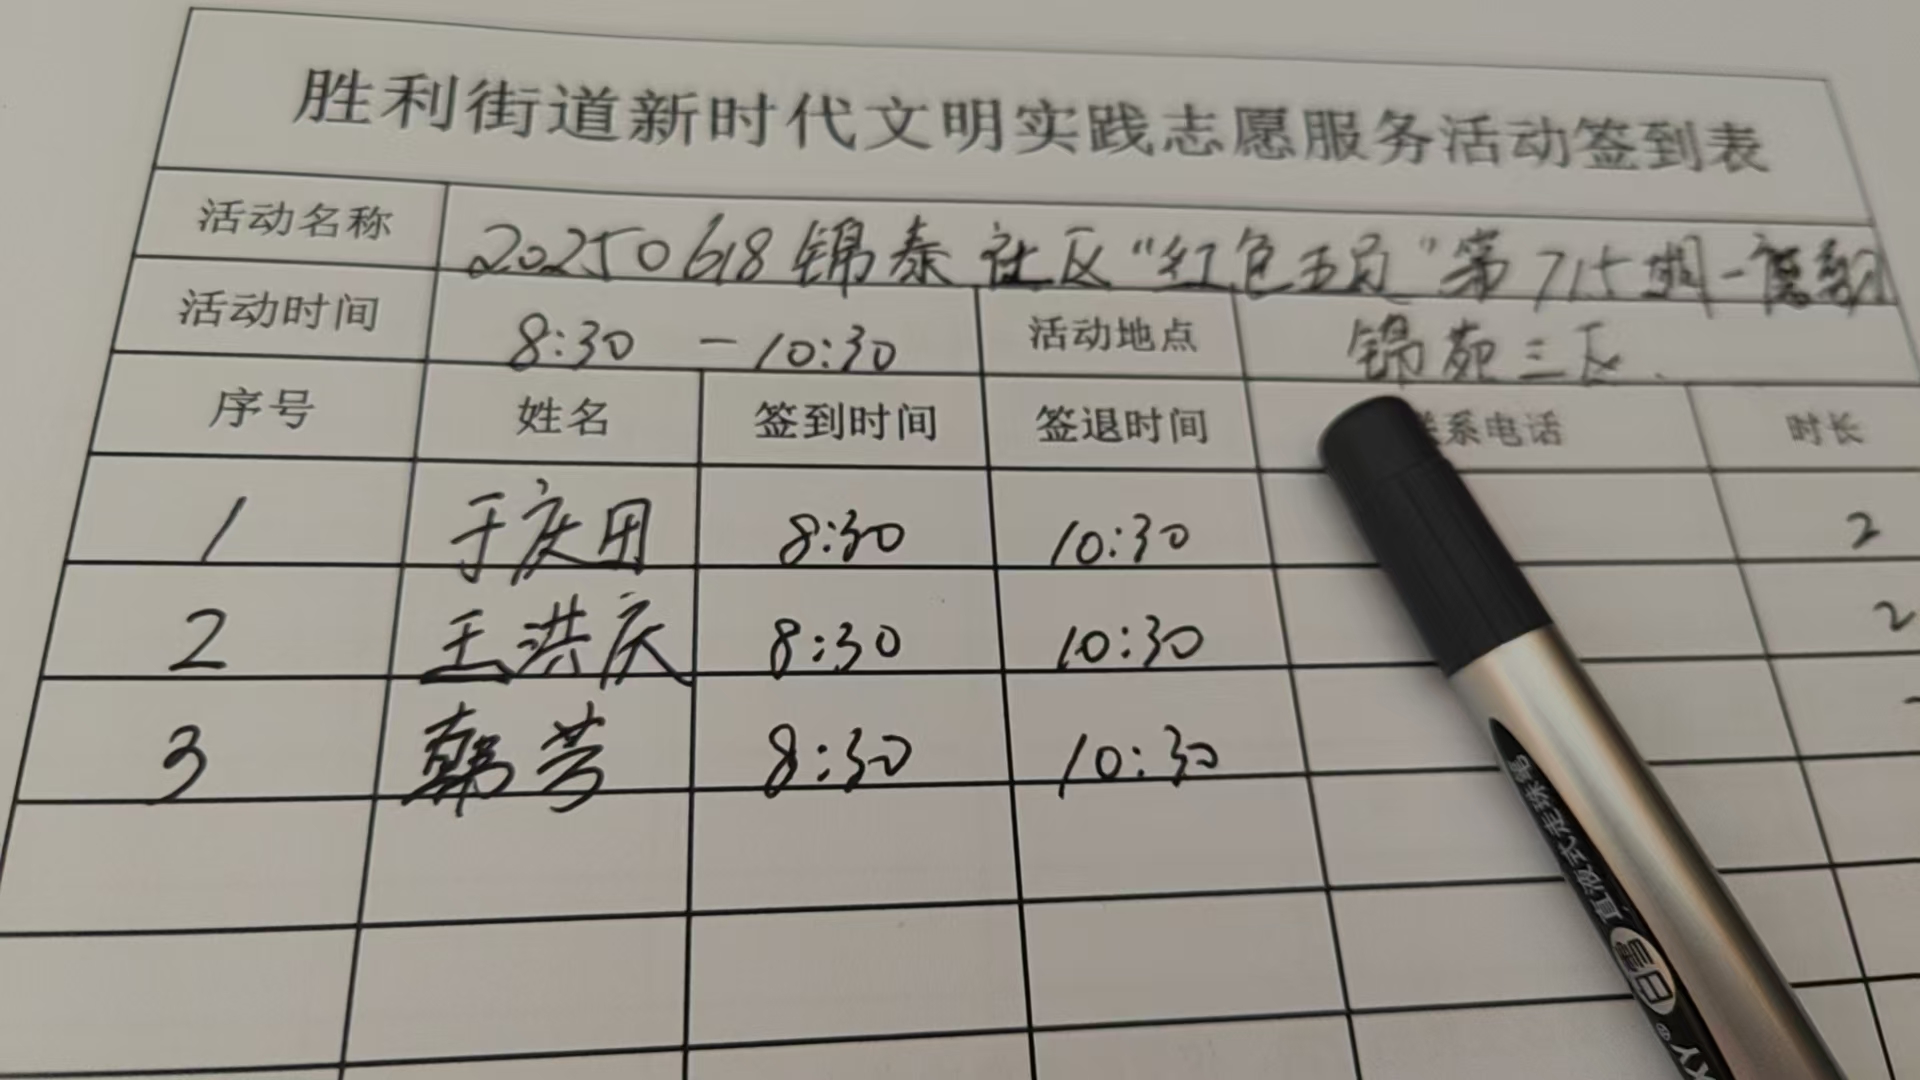 胜利街道新时代文明实践志愿服务活动签到表
活动名称 20250618锦泰社区“红色五员”第715期一
活动时间 8:30 - 10:30 活动地点 锦苑三区.
序号 姓名 签到时间 签退时间 联系电话 时长
1 于庆田 8:30 10:30 2
2 王洪庆 8:30 10:30 2
3 韩芳 8:30 10:30
直液式走珠笔